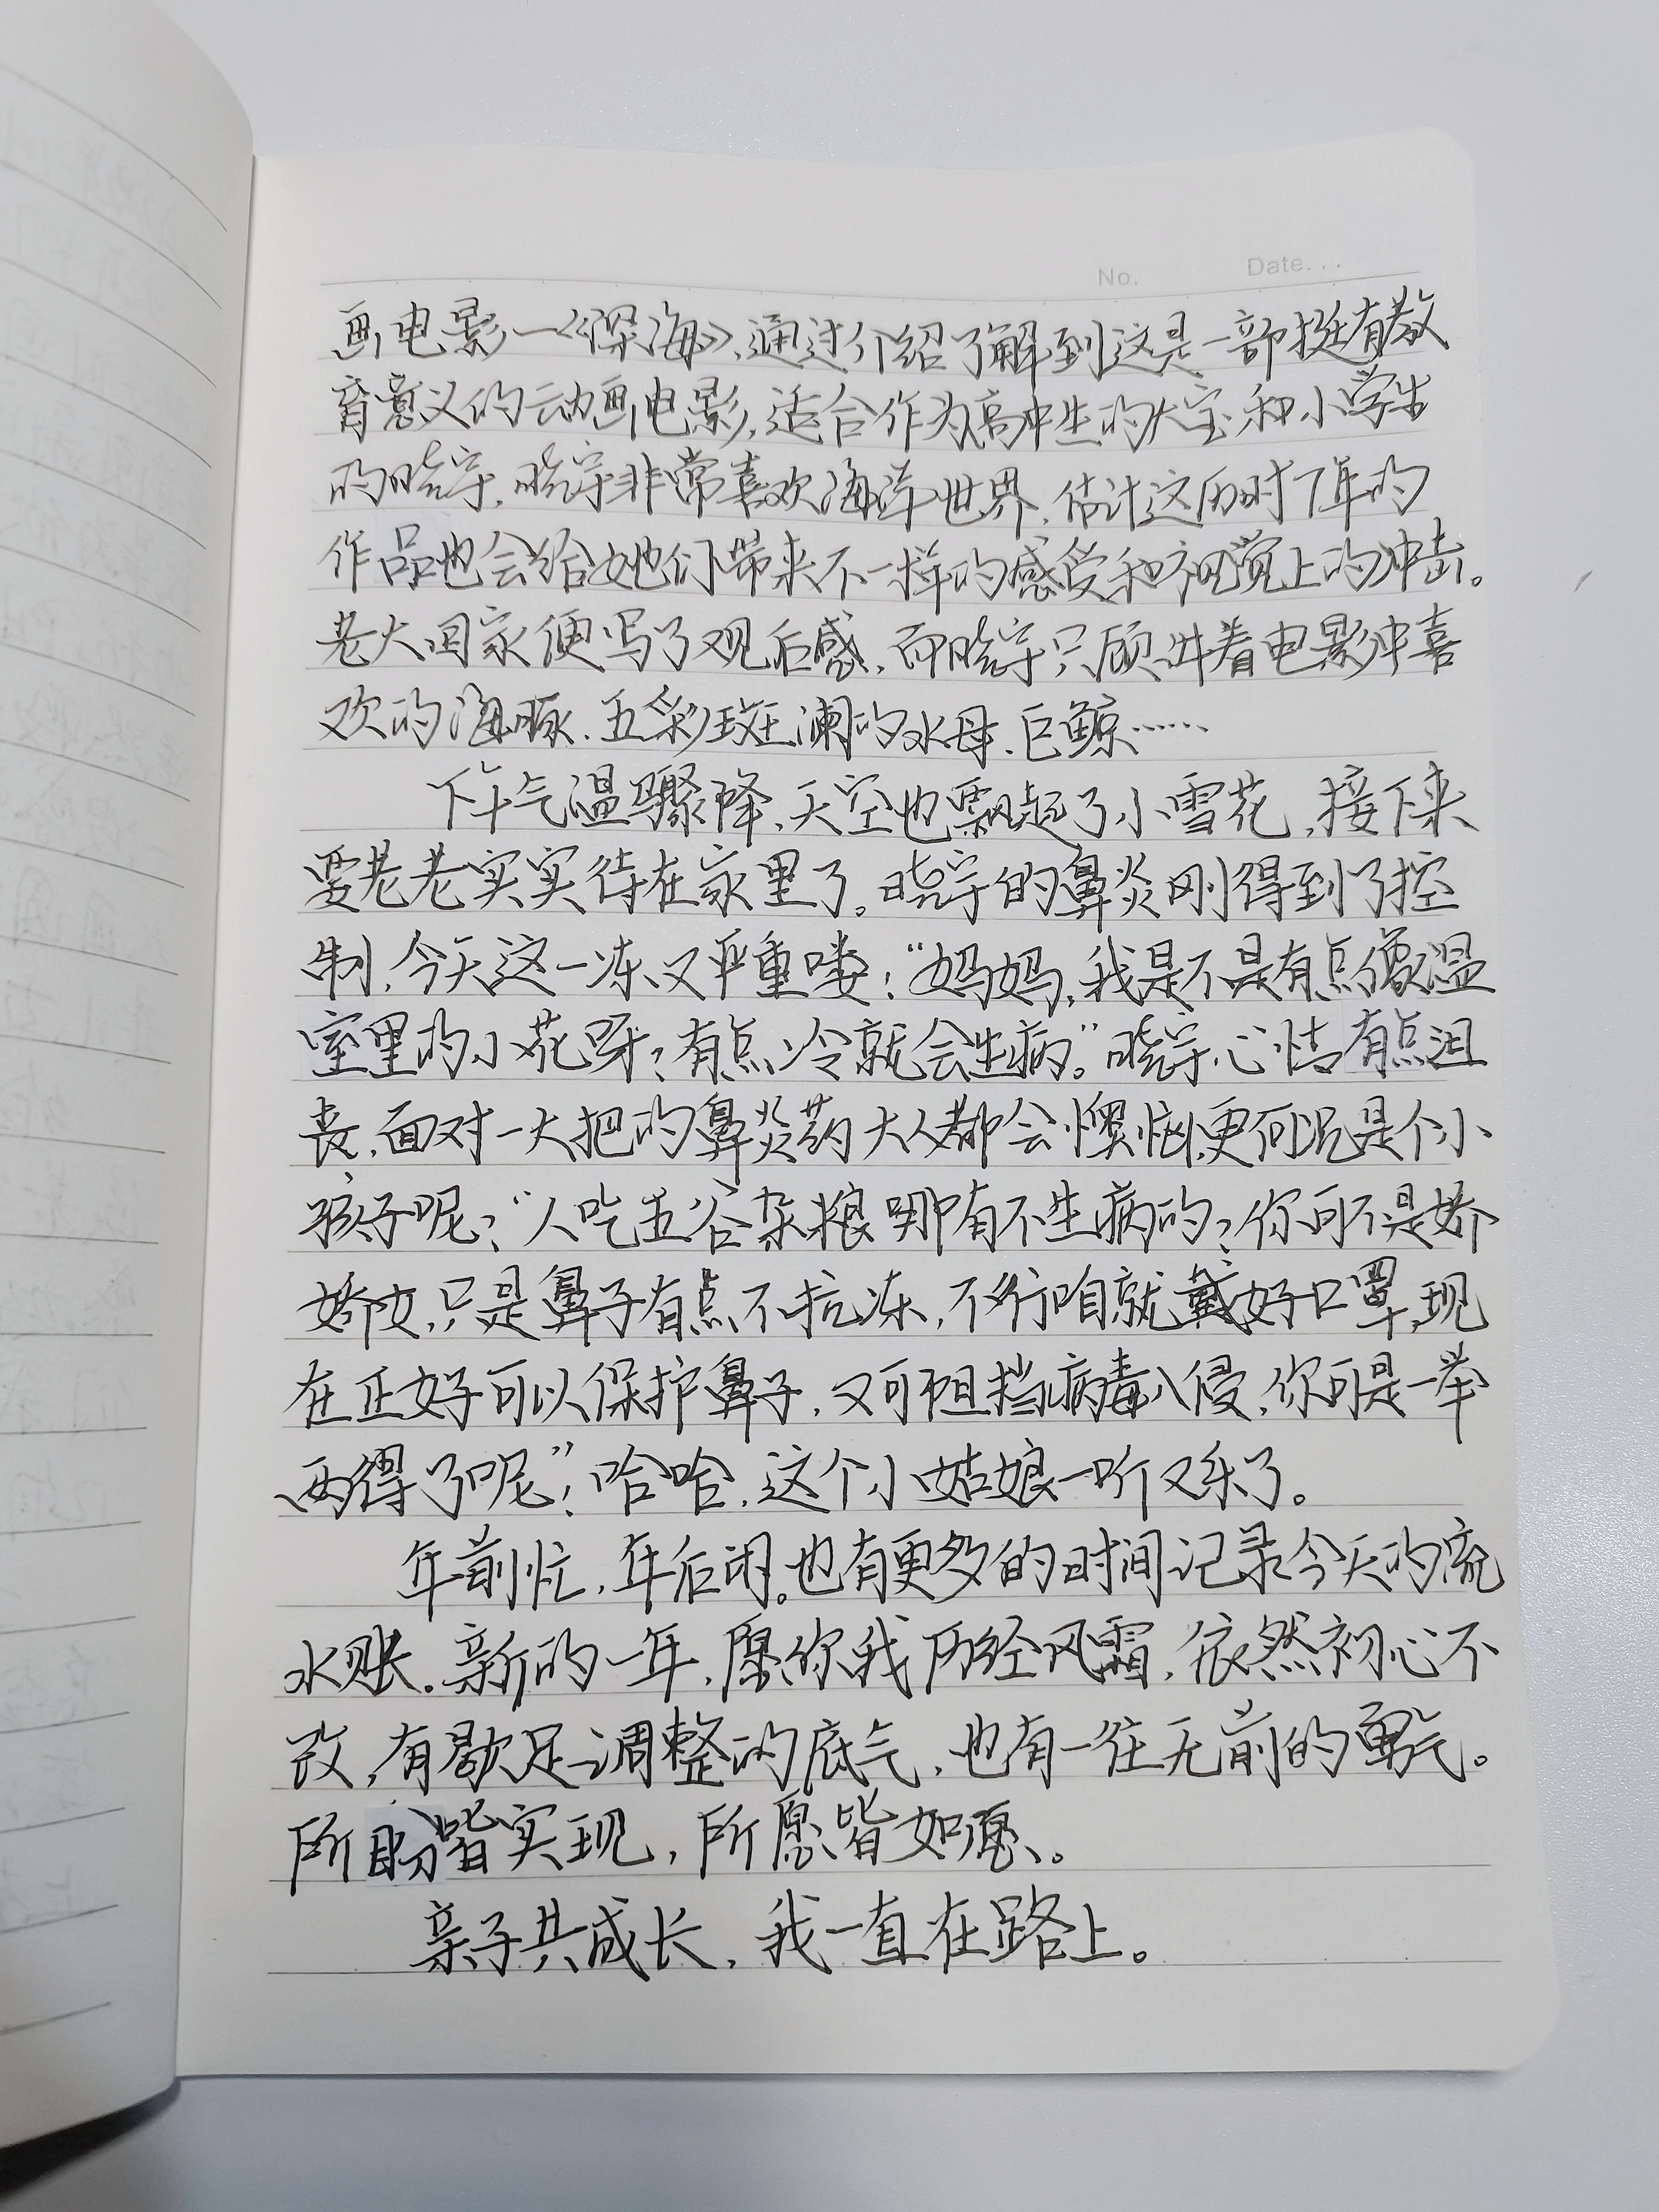 No.    Date...
画电影一《深海》,通过介绍了解到这是一部挺有教
育意义的动画电影,适合作为高中生的大宝和小学生
的晓宇,晓宇非常喜欢海洋世界,估计这历时7年的
作品也会给她们带来不一样的感受和视觉上的冲击。
老大回家便写了观后感,而晓宇只顾讲着电影中喜
欢的海豚、五彩斑澜的水母、巨鲸……
下午气温骤降,天空也飘起了小雪花,接下来
要老老实实待在家里了。晓宇的鼻炎刚得到了控
制,今天这一冻又严重喽:“妈妈,我是不是有点像温
室里的小花呀?有点冷就会生病。”晓宇心情有点沮
丧,面对一大把的鼻炎药大人都会懊恼,更何况是个小
孩子呢?“人吃五谷杂粮哪有不生病的?你可不是娇
娇女,只是鼻子有点不抗冻,不行咱就戴好口罩,现
在正好可以保护鼻子,又可阻挡病毒入侵,你可是一举
两得了呢”!哈哈,这个小姑娘一听又乐了。
年前忙,年后闲。也有更多的时间记录今天的流
水账。新的一年,愿你我历经风霜,依然初心不
改,有歇足调整的底气,也有一往无前的勇气。
所盼皆实现,所愿皆如愿。
亲子共成长,我一直在路上。